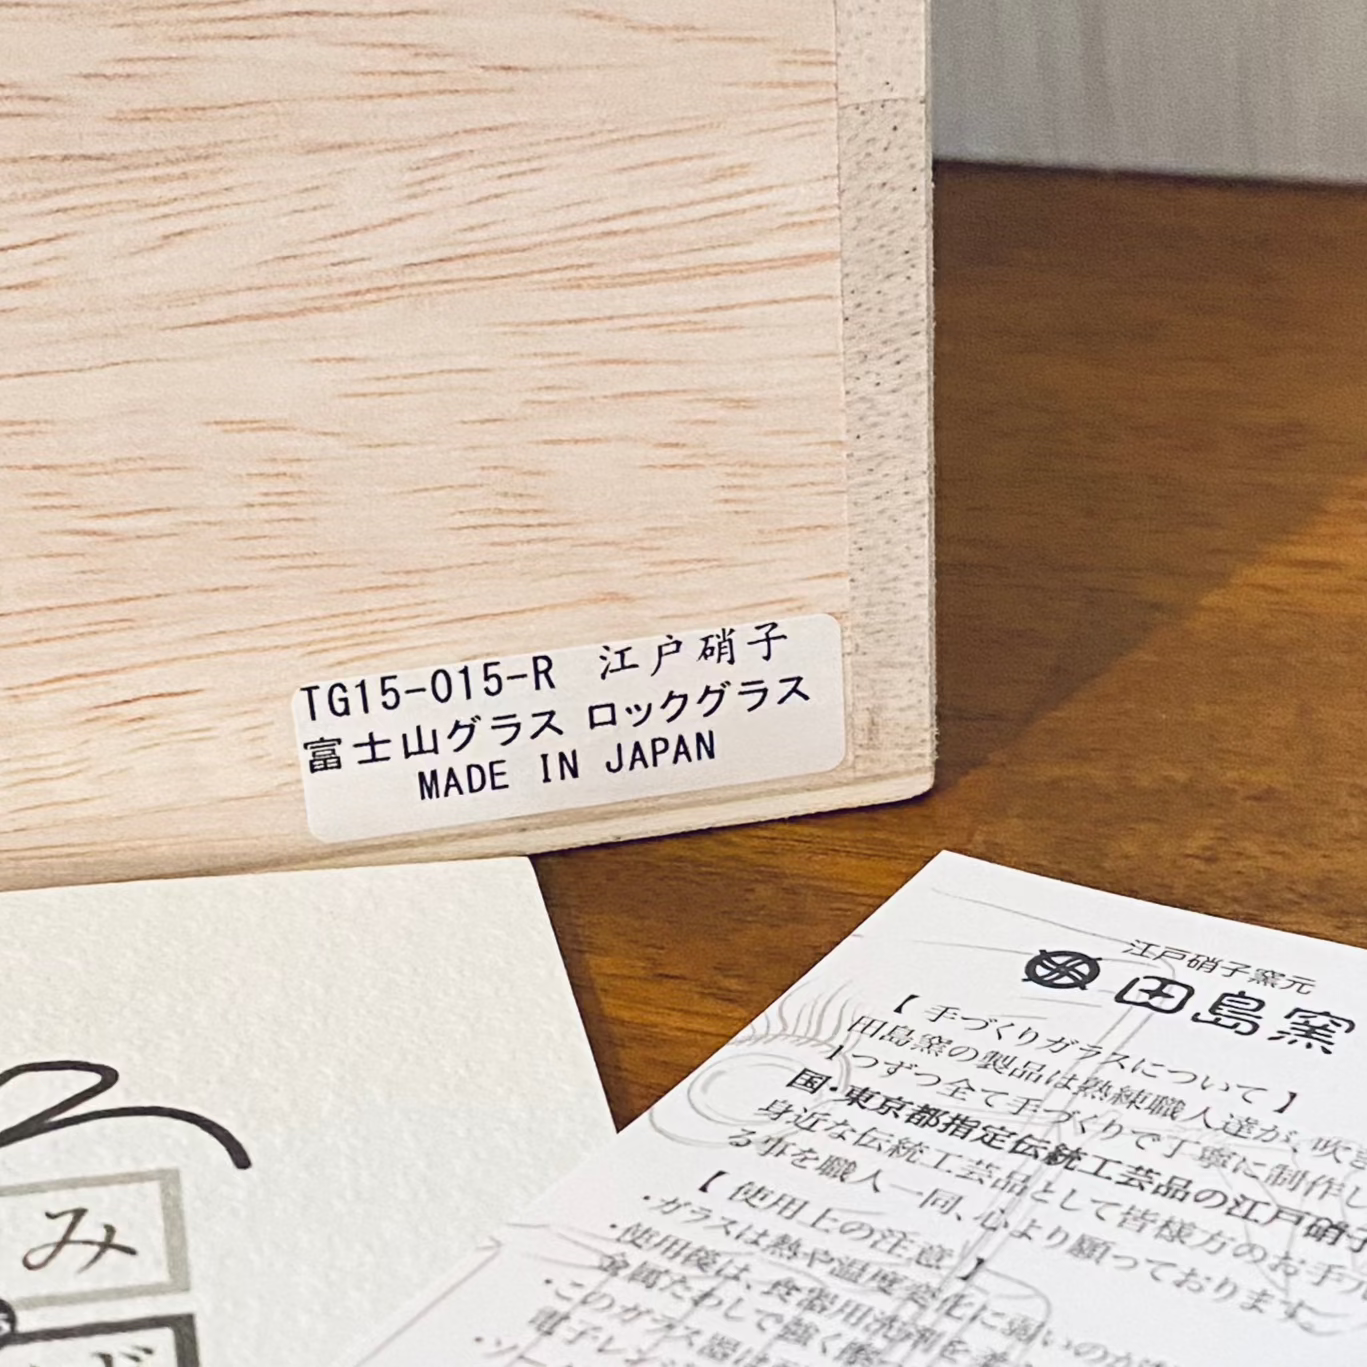 TG15-015-R 江戸硝子
富士山グラス ロックグラス
MADE IN JAPAN
み
江戸硝子窯元
田島窯
【 手づくりガラスについて 】
田島窯の製品は熟練職人達が、吹き
1つずつ全て手づくりで丁寧に制作し
国・東京都指定伝統工芸品の江戸硝子
身近な伝統工芸品として皆様方のお手元
る事を職人一同、心より願っております。
【 使用上の注意 】
・ガラスは熱や温度変化に弱いの
・使用後は、食器用洗剤を
金属たわしで強く擦
・このガラス器は
電子レン